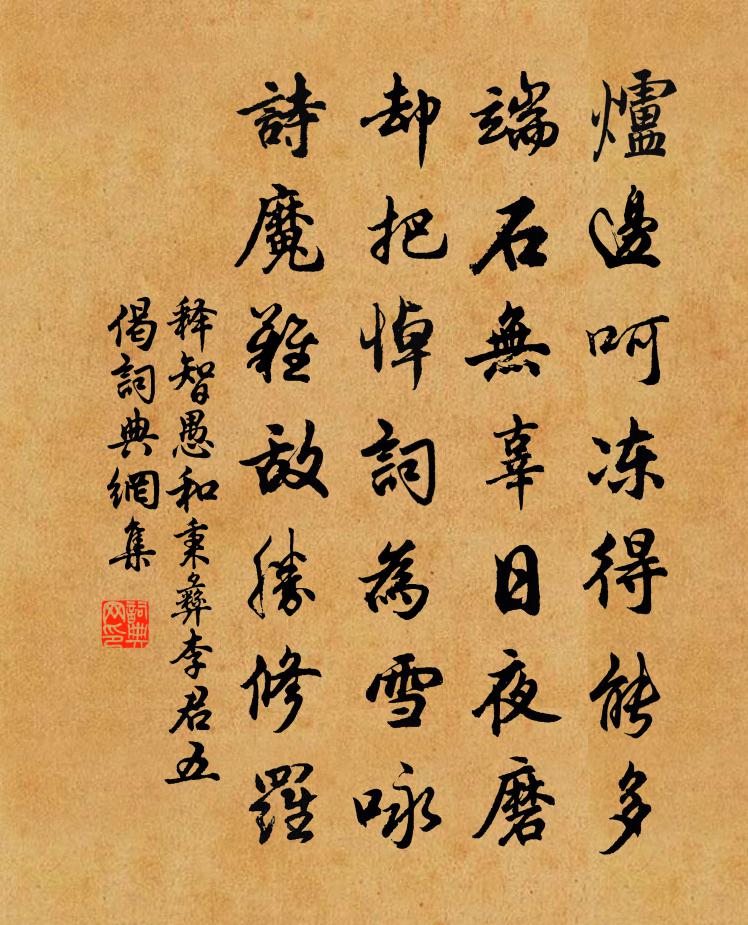 爐邊呵冻得能多
端石無辜日夜磨
却把悼詞為雪咏
詩魔難敌勝修羅
释智愚和秉彝李君五
偈詞典網集
詞典網印